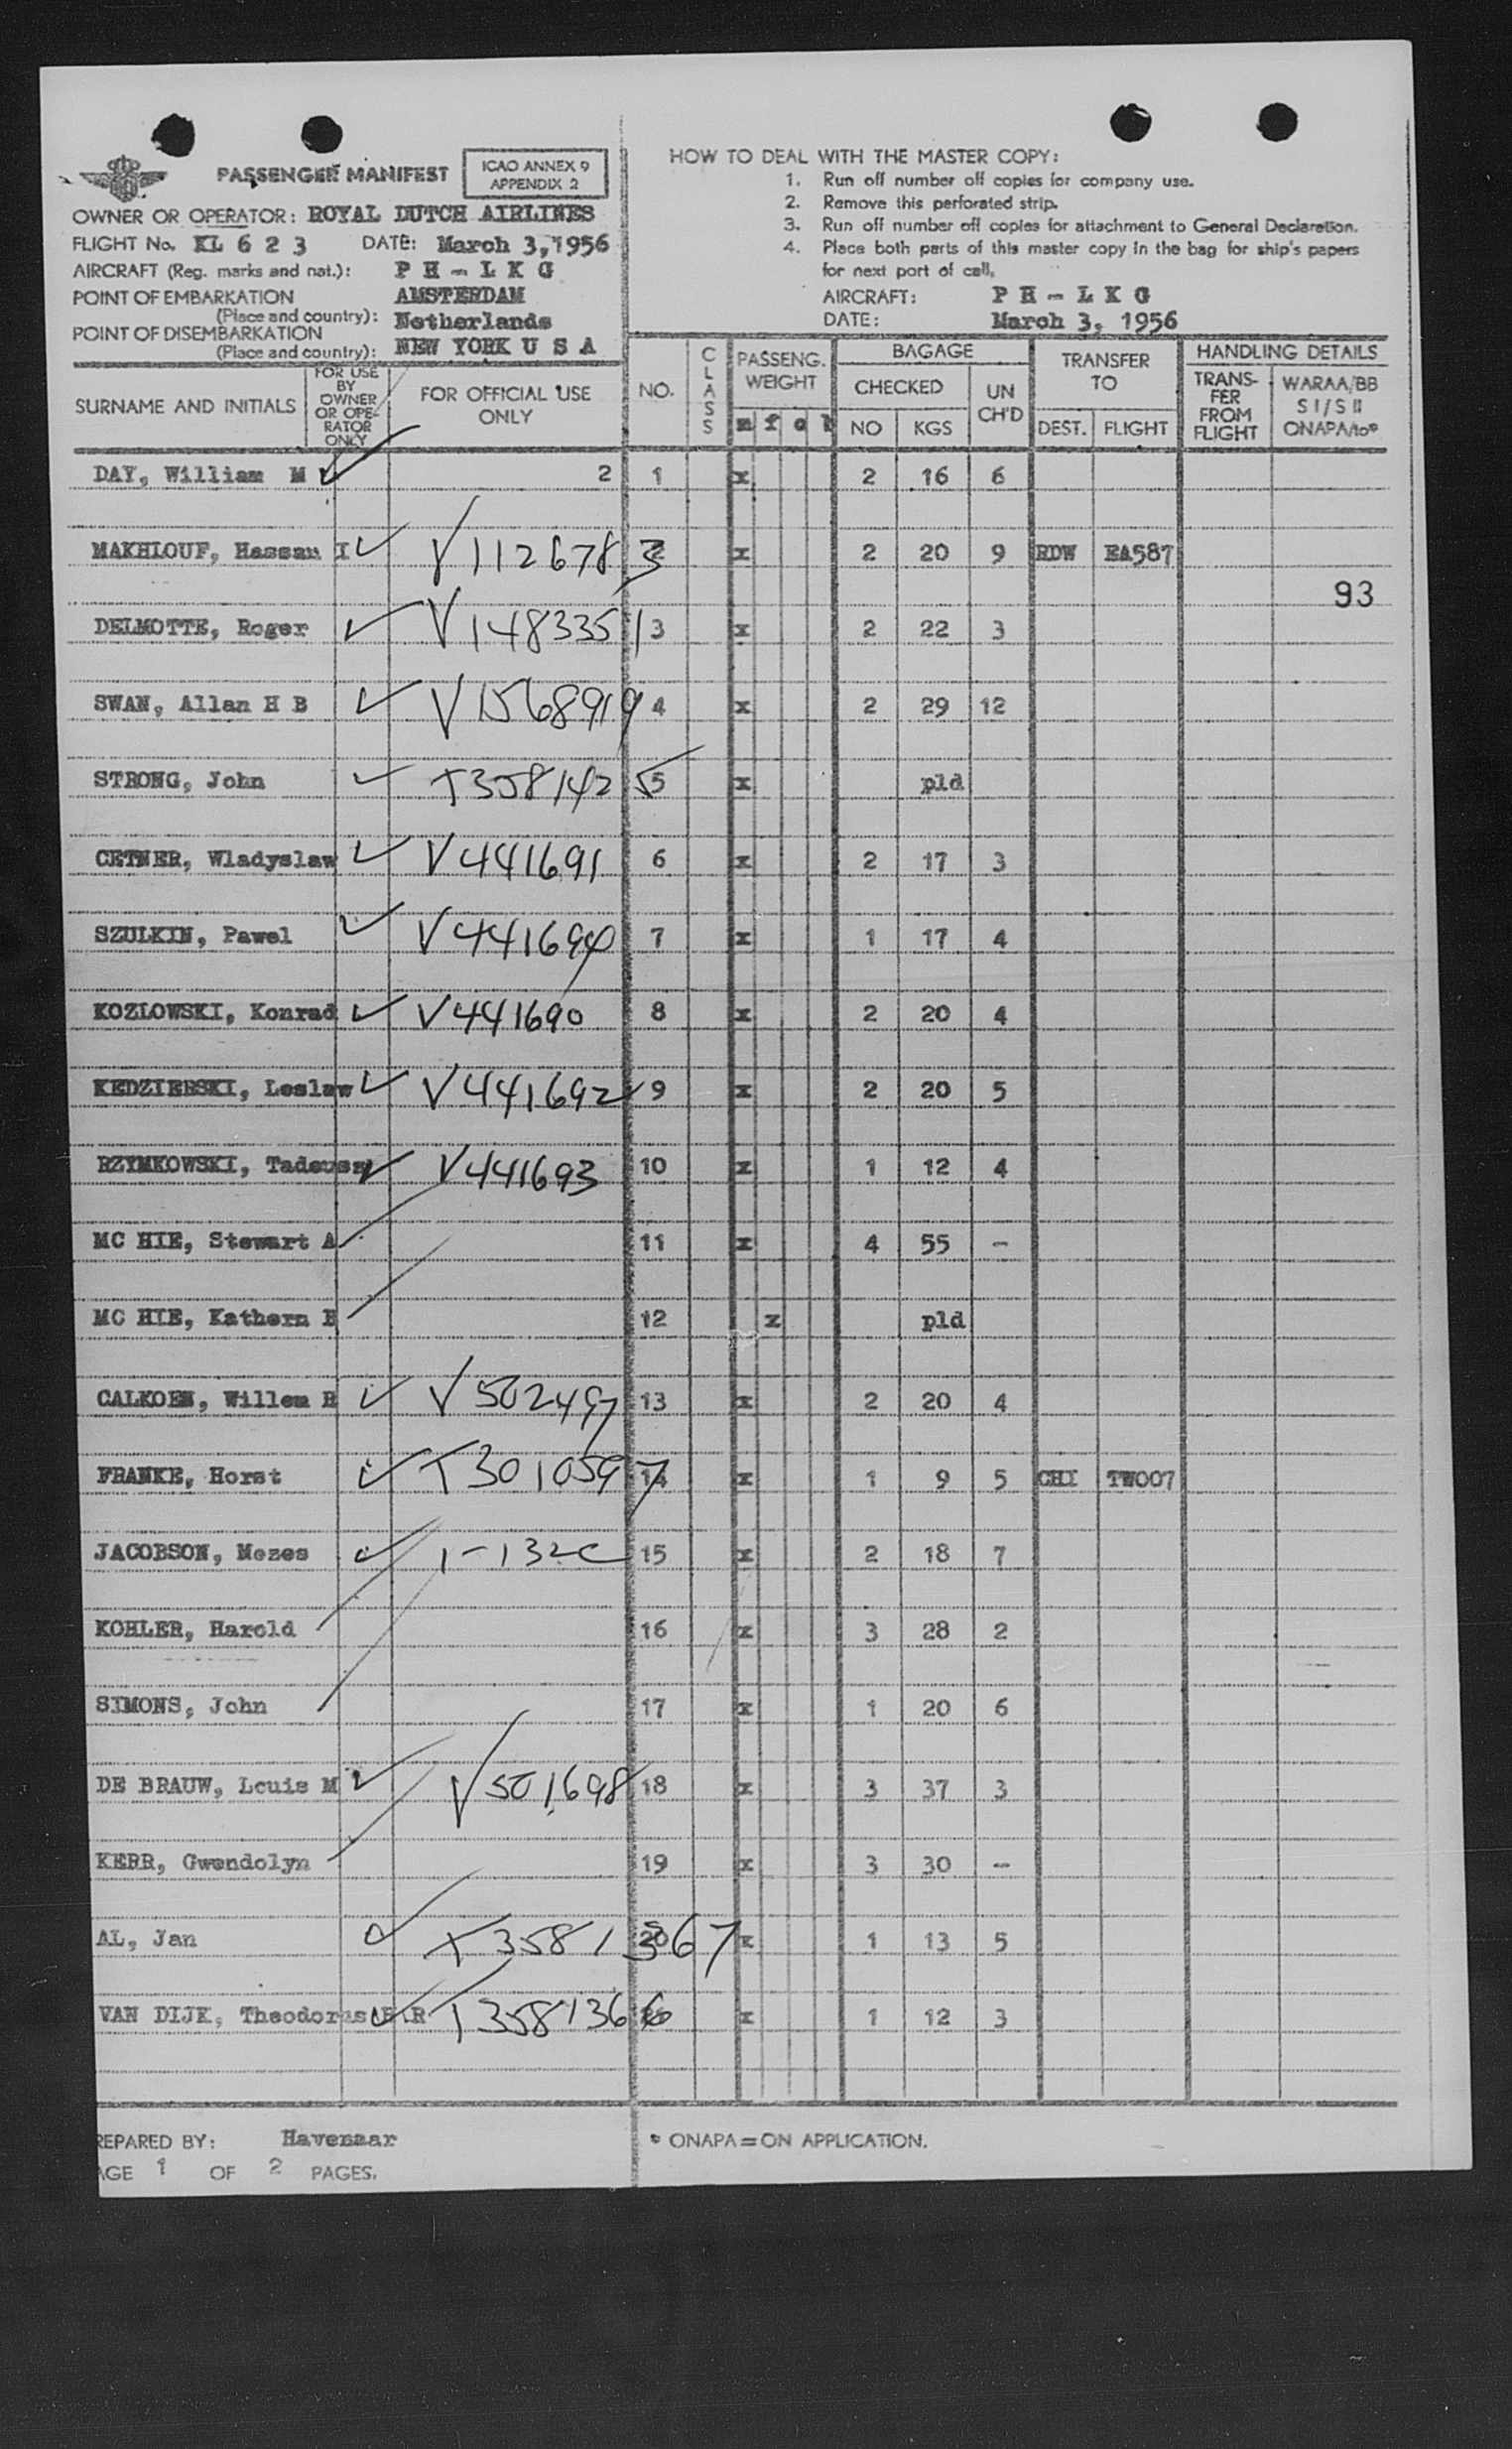 PASSENGER MANIFEST
ICAO ANNEX 9
APPENDIX 2
OWNER OR OPERATOR: ROYAL DUTCH AIRLINES
FLIGHT No. KL 6 2 3 DATE: March 3, 1956
AIRCRAFT (Reg. marks and nat.): P H - L K G
POINT OF EMBARKATION AMSTERDAM
(Place and country): Netherlands
POINT OF DISEMBARKATION
(Place and country): NEW YORK U S A
HOW TO DEAL WITH THE MASTER COPY:
1. Run off number off copies for company use.
2. Remove this perforated strip.
3. Run off number off copies for attachment to General Declaration.
4. Place both parts of this master copy in the bag for ship's papers
for next port of call.
AIRCRAFT: P H - L K G
DATE: March 3, 1956
SURNAME AND INITIALS FOR USE BY OWNER OR OPE-RATOR ONLY FOR OFFICIAL USE ONLY NO. CLASS PASSENG. WEIGHT m f BAGAGE CHECKED NO KGS UN CH'D TRANSFER TO DEST. FLIGHT HANDLING DETAILS TRANS-FER FROM FLIGHT WARAA/BB S I/S II ONAPA/to*
DAY, William M 2 1 x 2 16 6
MAKHLOUF, Hassan I V1126783 x 2 20 9 RDW EA587
93
DELMOTTE, Roger V1483351 3 x 2 22 3
SWAN, Allan H B V1568919 4 x 2 29 12
STRONG, John T3581425 5 x pld
CETNER, Wladyslaw V441691 6 x 2 17 3
SZULKIN, Pawel V441694 7 x 1 17 4
KOZLOWSKI, Konrad V441690 8 x 2 20 4
KEDZIERSKI, Leslaw V441692 9 x 2 20 5
RZYMKOWSKI, Tadeusz V441693 10 x 1 12 4
MC HIE, Stewart A 11 x 4 55 -
MC HIE, Kathern E 12 x pld
CALKOEN, Willem H V502497 13 x 2 20 4
FRANKE, Horst T3010597 14 x 1 9 5 CHI TW007
JACOBSON, Mozes 1-132c 15 x 2 18 7
KOHLER, Harold 16 x 3 28 2
SIMONS, John 17 x 1 20 6
DE BRAUW, Louis M V501698 18 x 3 37 3
KERR, Gwendolyn 19 x 3 30 -
AL, Jan T3581367 20 x 1 13 5
VAN DIJK, Theodorus T3581366 x 1 12 3
REPARED BY: Havenaar
* ONAPA=ON APPLICATION.
AGE 1 OF 2 PAGES.